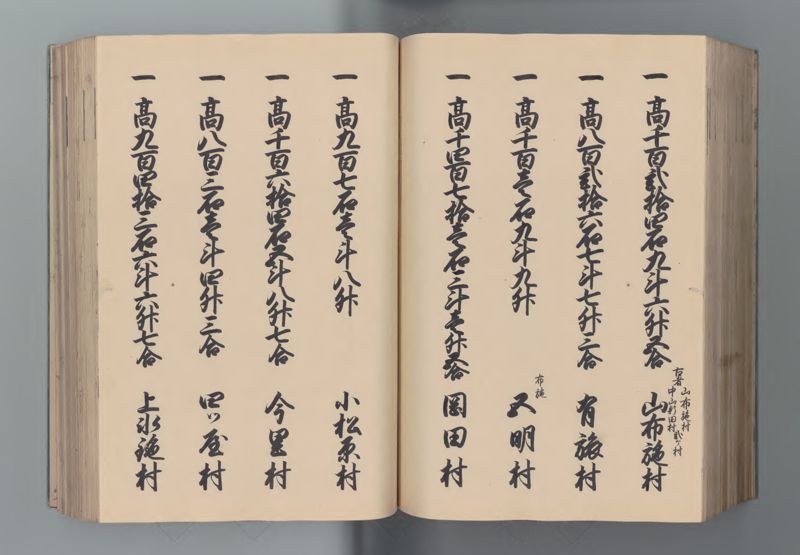 一 高千百弐拾四石九斗六升五合 山布施村
右者 山布施村
中山新田村 弐ケ村
一 高八百弐拾六石七斗七升三合 有旅村
一 高千百壱石九斗九升 五明村
布施
一 高千四百七拾壱石三斗壱升五合 岡田村
一 高九百七石壱斗八升 小松原村
一 高千百六拾四石五斗八升七合 今里村
一 高八百三石壱斗四升三合 四ツ屋村
一 高九百四拾三石六斗六升七合 上氷鉋村